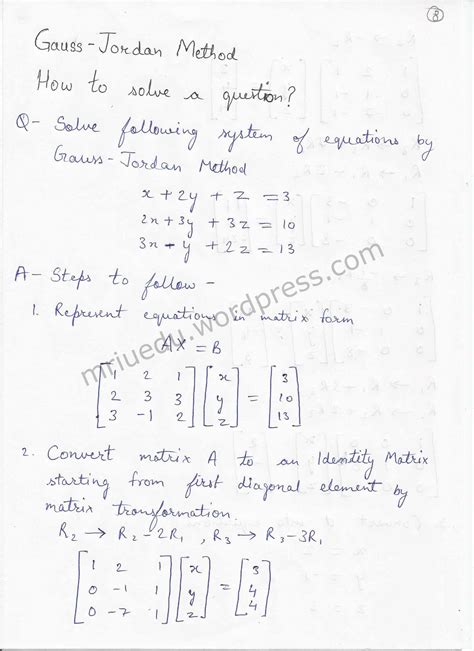 8
Gauss-Jordan Method
How to solve a question?
Q- Solve following system of equations by
Gauss-Jordan Method
x + 2y + z = 3
2x + 3y + 3z = 10
3x - y + 2z = 13
A- Steps to follow -
1. Represent equations in matrix form
AX = B
[1 2 1] [x] = [3]
[2 3 3] [y] = [10]
[3 -1 2] [z] = [13]
2. Convert matrix A to an Identity Matrix
starting from first diagonal element by
matrix transformation
R2 → R2-2R1 , R3 → R3-3R1
[1 2 1] [x] = [3]
[0 -1 1] [y] = [4]
[0 -7 1] [z] = [4]
mriuedu.wordpress.com